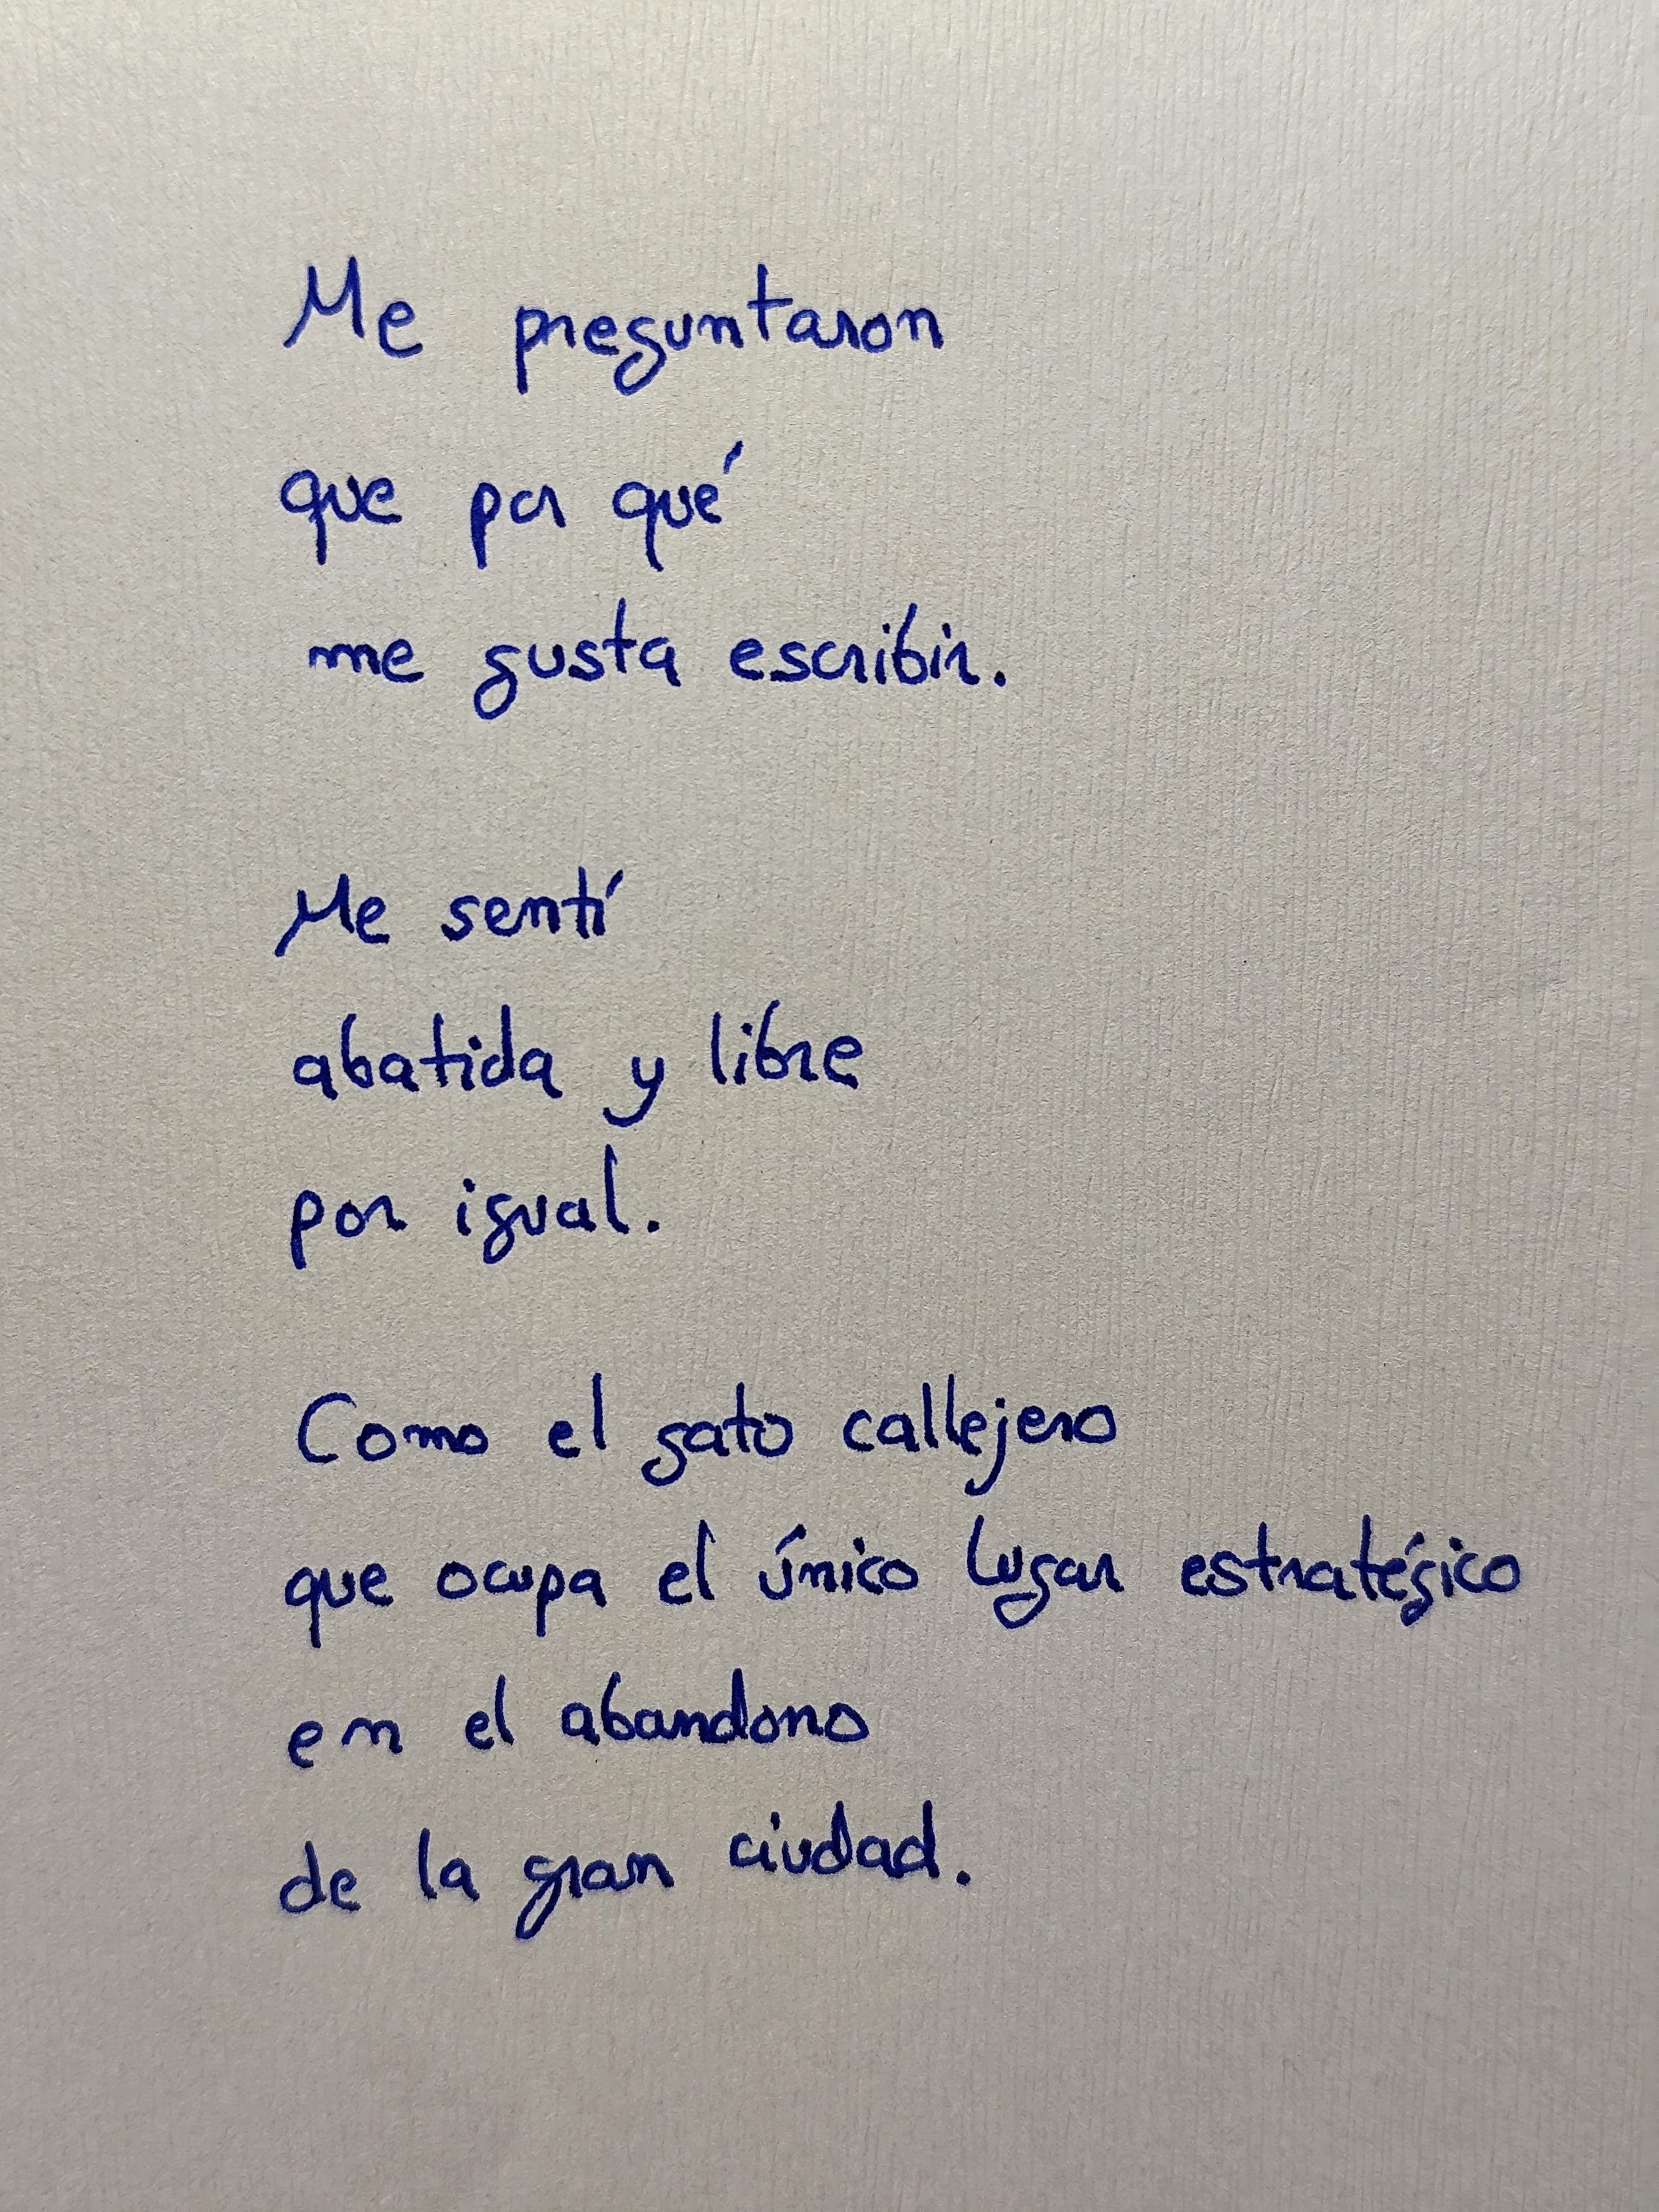 Me preguntaron
que por qué
me gusta escribir.
Me sentí
abatida y libre
por igual.
Como el gato callejero
que ocupa el único lugar estratégico
en el abandono
de la gran ciudad.